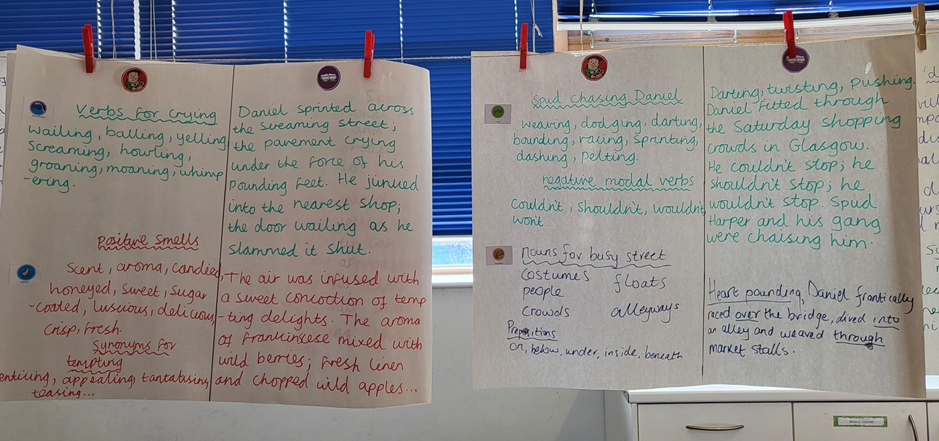 Verbs for crying
wailing, balling, yelling
screaming, howling,
groaning, moaning, whimp
-ering.
Positive smells
Scent, aroma, candied,
honeyed, sweet, sugar
-coated, luscious, delicious
crisp, fresh.
Synonyms for
tempting
enticing, appealing, tantatising,
teasing...
Daniel sprinted across
the screaming street;
the pavement crying
under the force of his
pounding feet. He
into the nearest shop;
the door wailing as he
slammed it shut.
The air was infused with
a sweet concoction of temp
-ting delights. The aroma
of frankinsese mixed with
wild berries; fresh linen
and chopped wild apples...
Spud Chasing Daniel
weaving, dodging, darting,
bounding, racing, sprinting,
dashing, pelting.
negative modal verbs
Couldn't, shouldn't, wouldn't,
won't
nouns for busy street
costumes floats
people
crowds alleyways
Prepositions
on, below, under, inside, beneath
Darting, twisting, pushing.
Daniel flitted through
the Saturday shopping
crowds in Glasgow.
He couldn't stop; he
shouldn't stop; he
wouldn't stop. Spud
Harper and his gang
were chaising him.
Heart pounding, Daniel frantically
raced over the bridge, dived into
an alley and weaved through
market stalls.